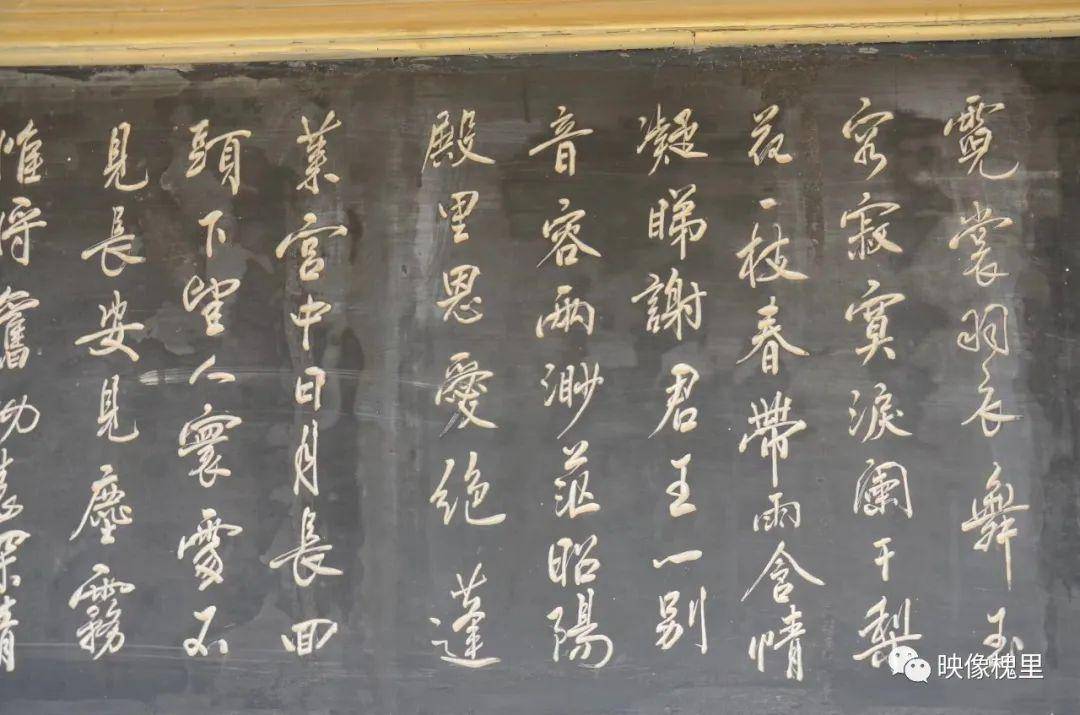 霓裳羽衣舞玉
容寂寞淚闌干梨
花一枝春帶雨含情
凝睇謝君王一别
音容兩渺茫昭陽
殿里恩愛絶蓬
萊宮中日月長回
頭下望人寰處不
見長安見塵霧
惟将舊物表深情
映像槐里